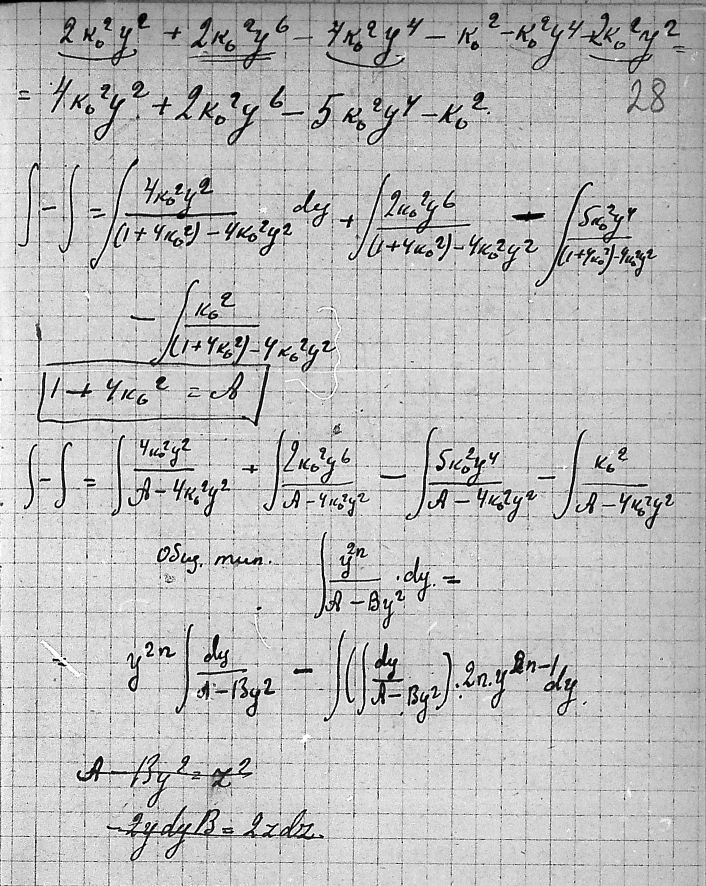 2к₀²y² + 2к₀²y⁶ − 4к₀²y⁴ − к₀² − к₀²y⁴ − 2к₀²y² =
= 4к₀²y² + 2к₀²y⁶ − 5к₀²y⁴ − к₀².
28
∫ − ∫ = ∫ 4к₀²y² / ((1+4к₀²) − 4к₀²y²) dy + ∫ 2к₀²y⁶ / ((1+4к₀²) − 4к₀²y²) − ∫ 5к₀²y⁴ / ((1+4к₀²) − 4к₀²y²)
− ∫ к₀² / ((1+4к₀²) − 4к₀²y²)
1 + 4к₀² = A
∫ − ∫ = ∫ 4к₀²y² / (A − 4к₀²y²) + ∫ 2к₀²y⁶ / (A − 4к₀²y²) − ∫ 5к₀²y⁴ / (A − 4к₀²y²) − ∫ к₀² / (A − 4к₀²y²)
Общ. тип. ∫ y²ⁿ / (A − By²) · dy =
= y²ⁿ ∫ dy / (A − By²) − ∫ (∫ dy / (A − By²)) · 2n · y²ⁿ⁻¹ dy
A − By² = z²
−2ydyB = 2zdz.